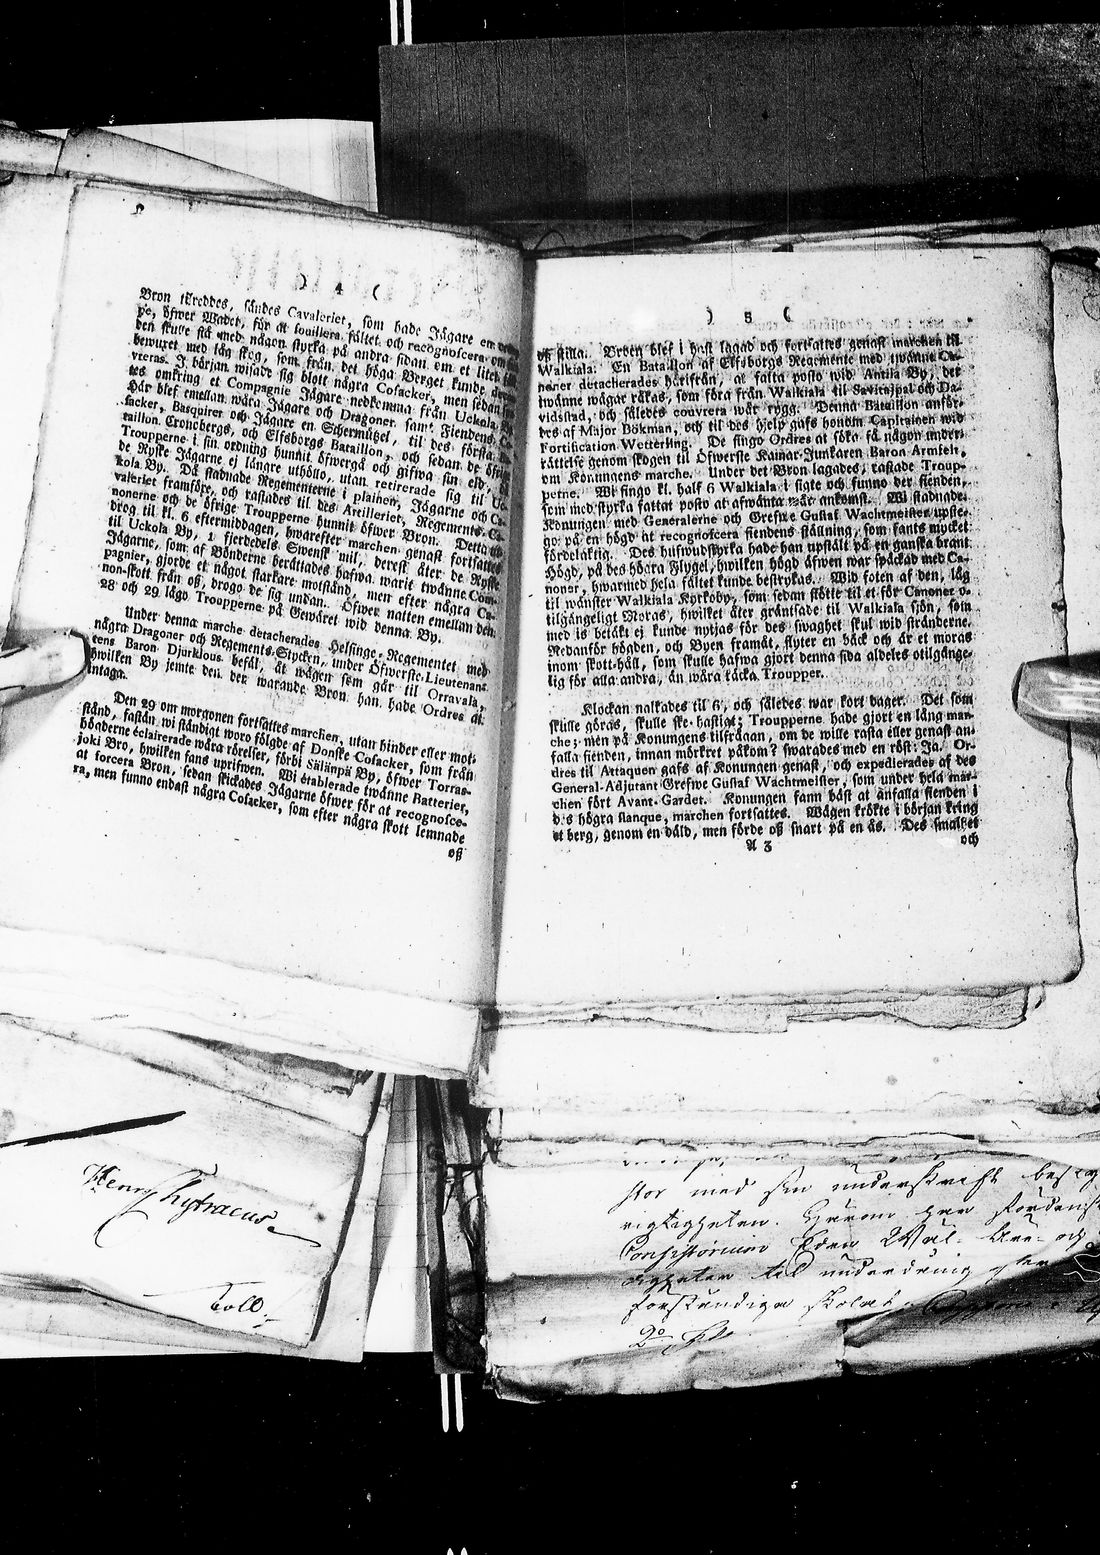 ) 4 (
Bron skeddes, sändes Cavaleriet, som hade Jägare en
pe, öfwer Wadet, för at fouillera fältet och recognoscera
den skulle stå med någon styrka på andra sidan om et litet
bewuxet med låg skog, som från det höga Berget kunde
vreras. I början wisade sig blott några Cosacker, men sedan
tes omkring et Compagnie Jägare nedkomma från Uckola By
Här blef emellan wåra Jägare och Dragoner samt Fiendens Co-
sacker, Basquirer och Jägare en Schermützel, til des första Ba-
taillon Cronobergs, och Elfsborgs Bataillon, och sedan de öfrige
Troupperne i sin ordning hunnit öfwergå och gifwa sin eld,
de Ryske Jägarne ej längre uthöllo, utan retirerade sig til Uc-
kola By. Då stadnade Regementerne i plainen, Jägarne och Ca-
valeriet framföre, och rastades til des Artilleriet, Regements-Ca-
nonerne och de öfrige Troupperne hunnit öfwer Bron. Detta ut-
drog til kl. 6 eftermiddagen, hwarefter marchen genast fortsattes
til Uckola By, 1 fjerdedels Swensk mil, derest åter de Ryske
Jägarne, som af Bönderne berättades hafwa warit twänne Com-
pagnier, gjorde et något starkare motstånd, men efter några Ca-
non-skott från oß, drogo de sig undan. Öfwer natten emellan den
28 och 29 lågo Troupperne på Gewäret wid denna By.
Under denna marche detacherades Helsinge-Regementet med
några Dragoner och Regements-Stycken, under Öfwerste-Lieutenan-
tens Baron Djurklous befäl, åt wägen som går til Orravala,
hwilken By jemte den der warande Bron han hade Ordres at
intaga.
Den 29 om morgonen fortsattes marchen, utan hinder eller mot-
stånd, fastän wi ständigt woro fölgde af Donske Cosacker, som från
högderne éclairerade wåra rörelser, förbi Sälänpä By, öfwer Torras-
joki Bro, hwilken fans uprifwen. Wi établerade twänne Batterier,
at forcera Bron, sedan skickades Jägarne öfwer för at recognosce-
ra, men funno endast några Cosacker, som efter några skott lemnade
oß
) 5 (
oß stilla. Broen blef i hast lagad och fortsattes genast marchen til
Walkiala. En Bataillon af Elfsborgs Regemente med twänne Ca-
noner detacherades härifrån, at fatta posto wid Antila By, der
twänne wägar råkas, som föra från Walkiala til Savitaipal och Da-
vidsstad, och således couvrera wår rygg. Denna Bataillon anför-
des af Major Bökman, och til des hjelp gafs honom Capitainen wid
Fortification Wetterling. De fingo Ordres at söka få någon under-
rättelse genom skogen til Öfwerste Kamar-Junkaren Baron Armfelt,
om Konungens marche. Under det Bron lagades, rastade Troup-
perne. Wi fingo kl. half 6 Walkiala i sigte och funno der fienden,
som med styrka fattat posto at afwänta wår ankomst. Wi stadnade.
Konungen med Generalerne och Grefwe Gustaf Wachtmeister upste-
go på en högd at recognoscera fiendens ställning, som fants mycket
fördelaktig. Des hufwudstyrka hade han upstält på en ganska brant
Högd, på des högra Flygel, hwilken högd äfwen war späckad med Ca-
noner, hwarmed hela fältet kunde bestrykas. Wid foten af den, låg
til wänster Walkiala Kyrkoby, som sedan stötte til et för Canoner o-
tilgängeligt Moras, hwilket åter gräntsade til Walkiala sjön, som
med is betäkt ej kunde nytjas för des swaghet skul wid stränderne.
Nedanför högden, och Byen framåt, flyter en bäck och är et moras
inom skott-håll, som skulle hafwa gjort denna sida aldeles otilgänge-
lig för alla andra, än wåra täcka Troupper.
Klockan nalkades til 6, och således war kort dager. Det som
skulle göras, skulle ske hastigt; Troupperne hade gjort en lång mar-
che; men på Konungens tilfrågan, om de wille rasta eller genast an-
falla fienden, innan mörkret påkom? swarades med en röst: Ja! Or-
dres til Attaquen gafs af Konungen genast, och expedierades af des
General-Adjutant Grefwe Gustaf Wachtmeister, som under hela mar-
chen fört Avant-Gardet. Konungen fann bäst at anfalla fienden i
des högra flanque, marchen fortsattes. Wägen krökte i början kring
et berg, genom en däld, men förde oß snart på en ås. Des smalhet
A 3
och
Henr Chytraeus
Toll
stor med sin underskrift
rigtigheten. Härom
Consistorium
til
2o